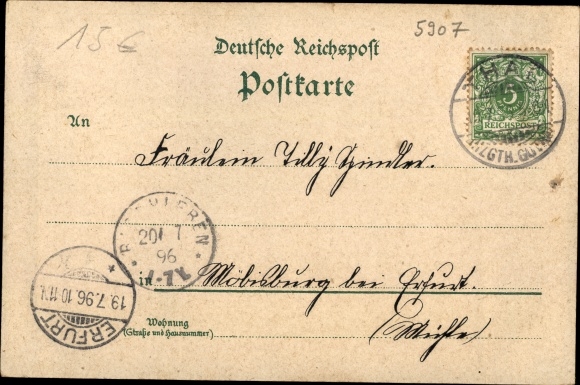 15 €
5907
Deutsche Reichspost
Postkarte
THAL
HZGTH.
5
REICHSPOST
An
Fräulein Tilly Spindler.
20/7
96
in Möbisburg bei Erfurt.
ERFURT
19.7.96.10-11V.
Wohnung
(Straße und Hausnummer)
(Mühle)